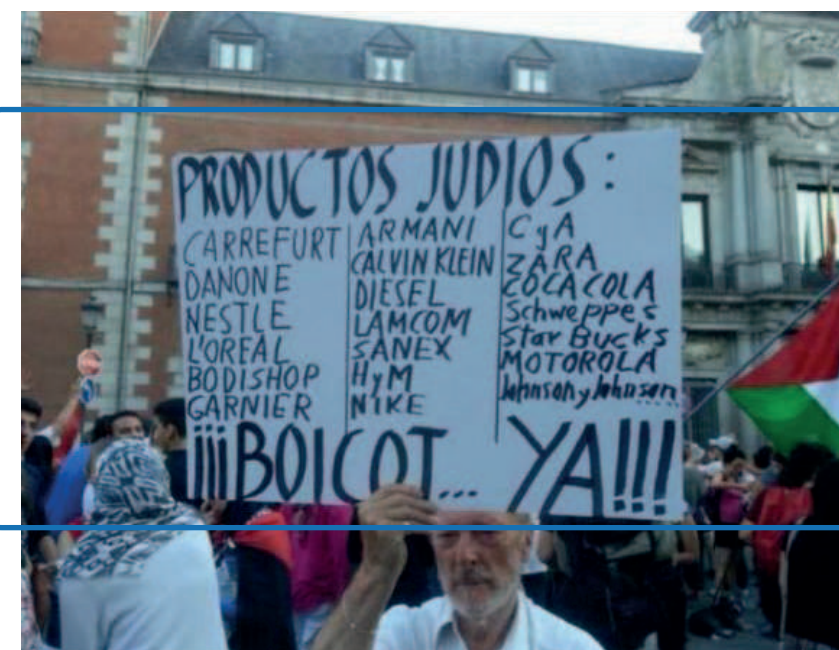 PRODUCTOS JUDIOS:
CARREFURT
DANONE
NESTLE
L'OREAL
BODISHOP
GARNIER
ARMANI
CALVIN KLEIN
DIESEL
LAMCOM
SANEX
HyM
NIKE
CyA
ZARA
COCACOLA
Schweppes
Star Bucks
MOTOROLA
Johnson y Johnson.....
¡¡¡BOICOT... YA!!!